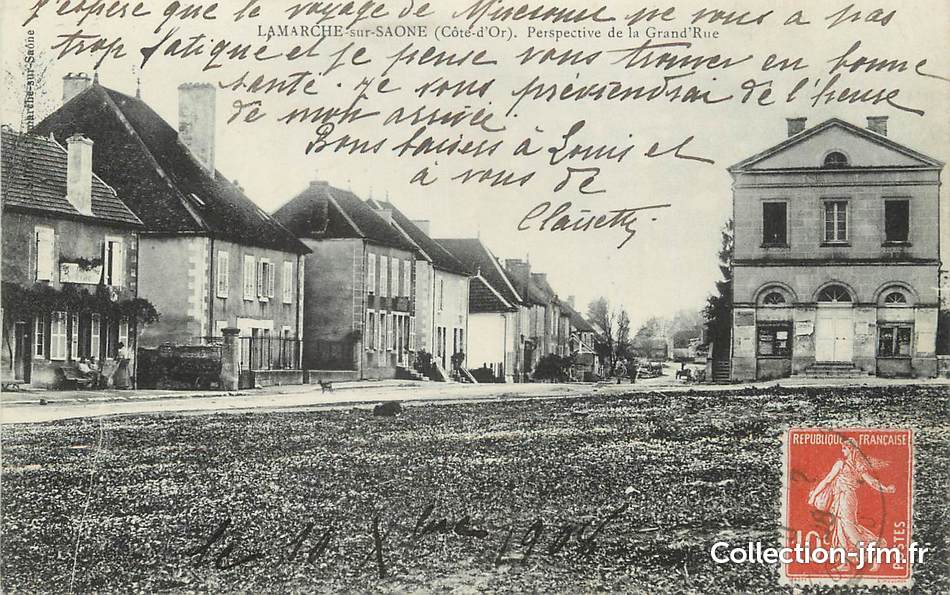 J'espère que le voyage de Mirecourt ne vous a pas
LAMARCHE-sur-SAONE (Côte-d'Or). Perspective de la Grand'Rue
trop fatigué et je pense vous trouver en bonne
santé. Je vous préviendrai de l'heure
de mon arrivée.
Bons baisers à Louis et
à vous de
Clairette
marche-sur-Saône
REPUBLIQUE FRANÇAISE
10c
POSTES
le 10 1906
Collection-jfm.fr